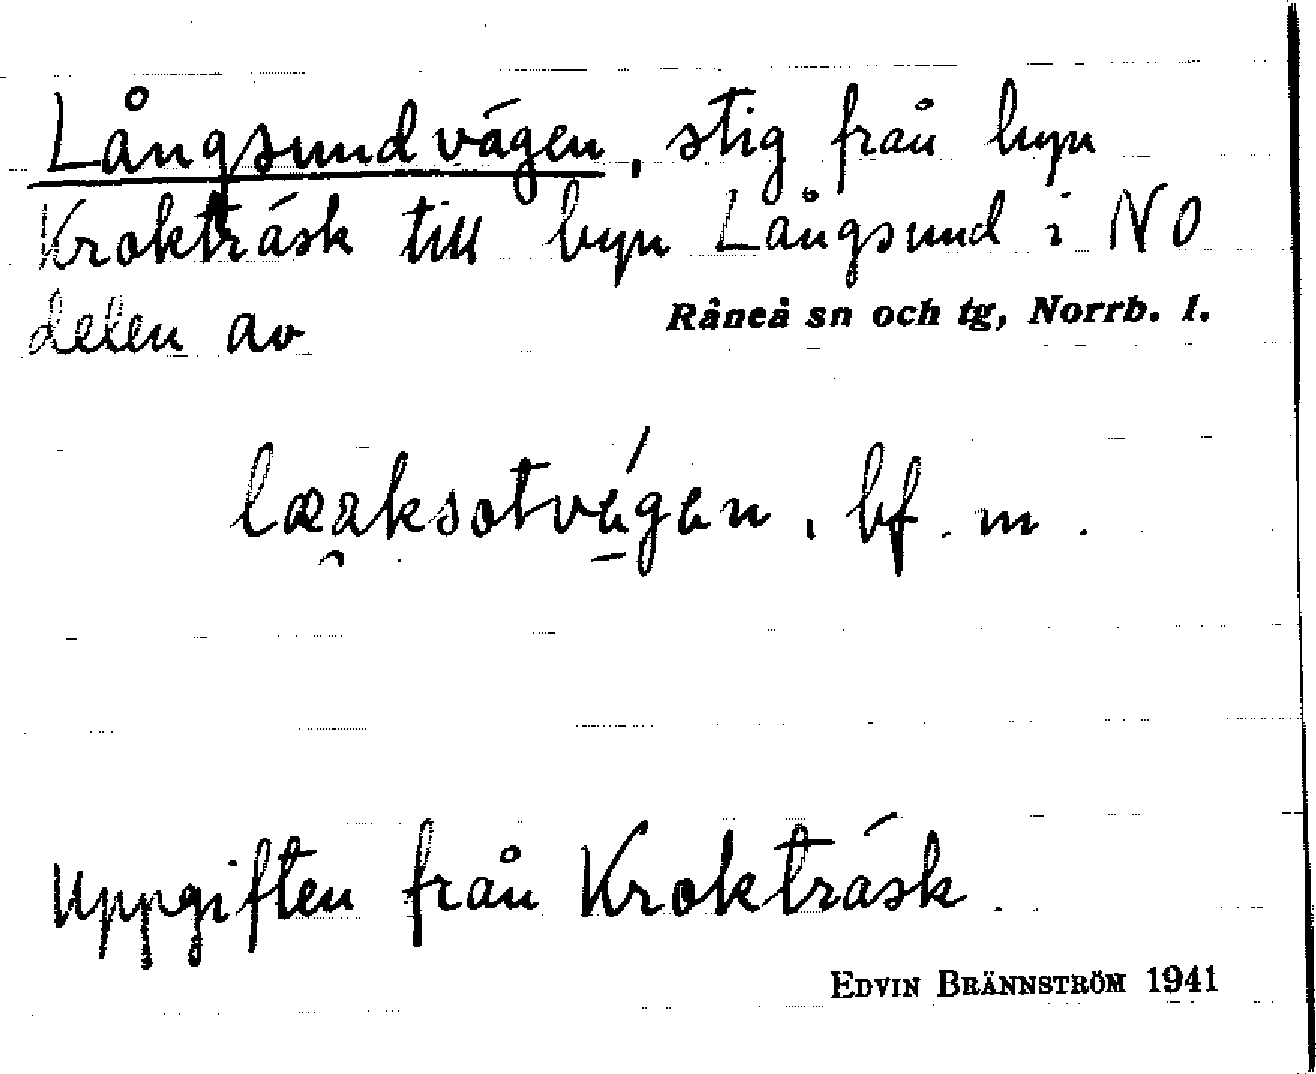 Långsundvägen, stig från byn
Krokträsk till byn Långsund i NO
delen av Råneå sn och tg, Norrb. l.
bf. m.
Uppgiften från Krokträsk.
EDVIN BRÄNNSTRÖM 1941